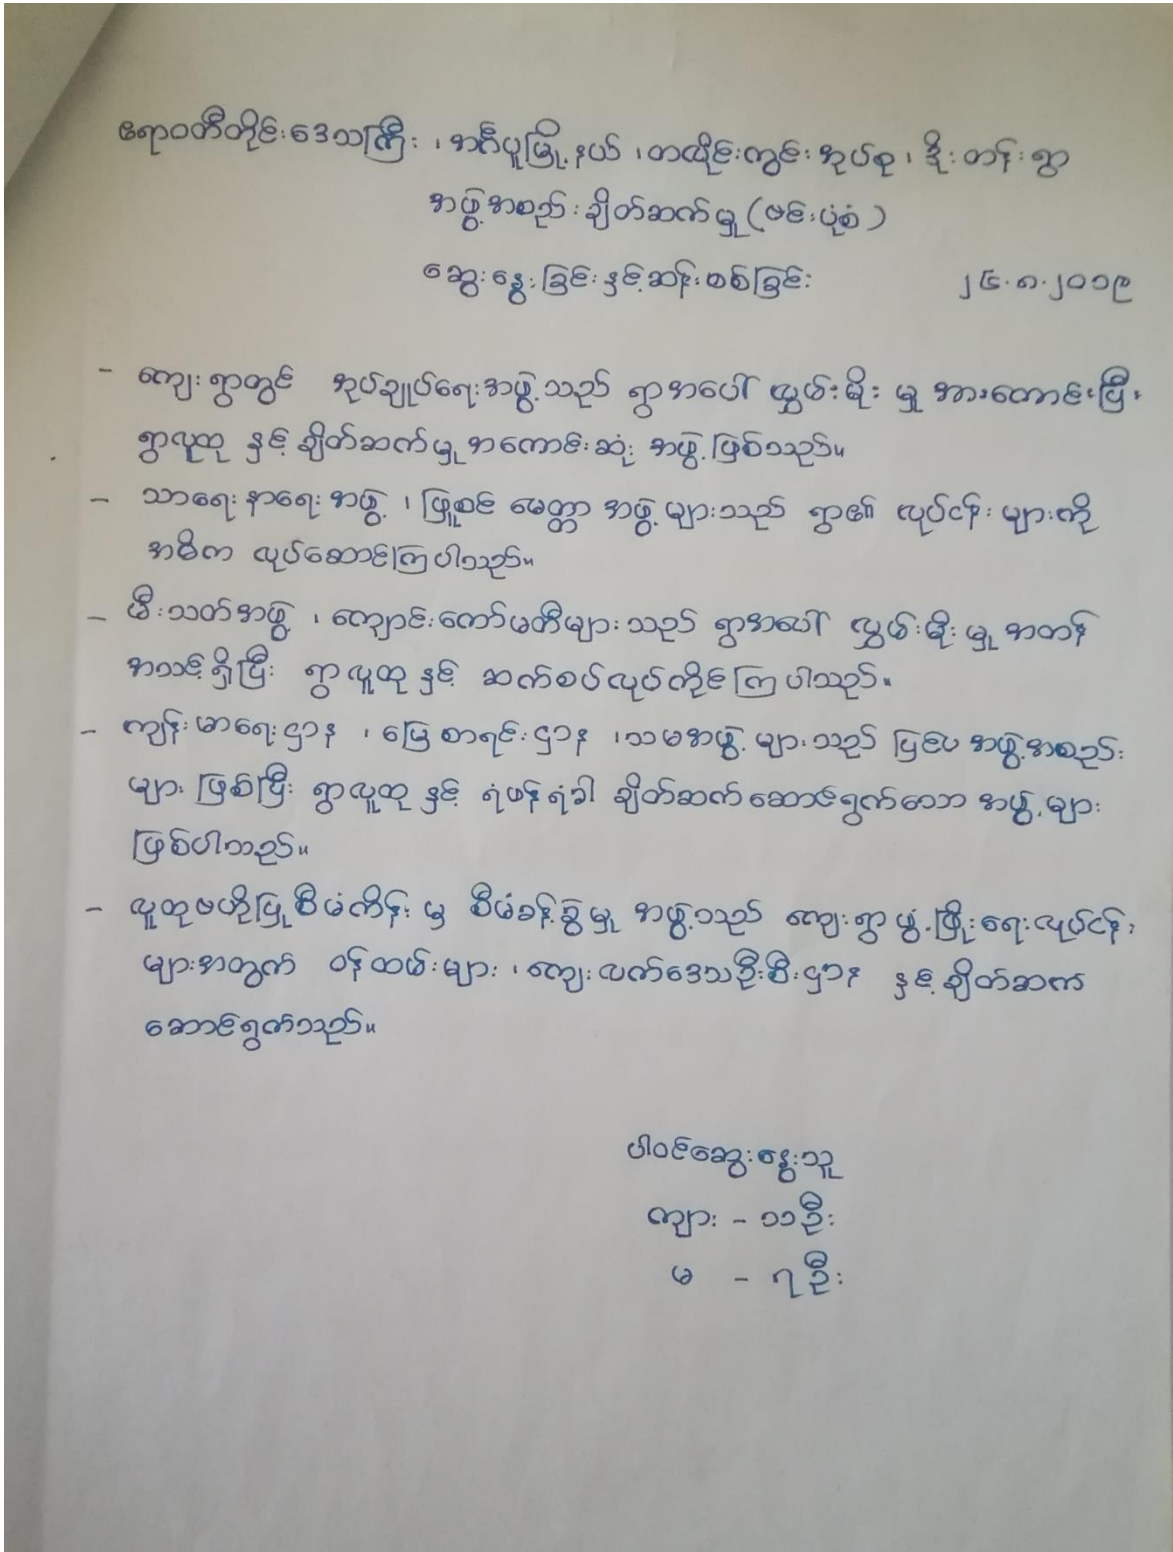 ဧရာဝတီတိုင်းဒေသကြီး ၊ အင်္ဂပူမြို့နယ် ၊ တထိုင်းကွင်းအုပ်စု ၊ ဒိုးတန်းရွာ
အဖွဲ့အစည်းချိတ်ဆက်မှု (ဗင်းပုံစံ)
ဆွေးနွေးခြင်းနှင့်ဆန်းစစ်ခြင်း ၂၆.၈.၂၀၁၉
- ကျေးရွာတွင် အုပ်ချုပ်ရေးအဖွဲ့သည် ရွာအပေါ် လွှမ်းမိုးမှု အားကောင်းပြီး
ရွာလူထု နှင့် ချိတ်ဆက်မှု အကောင်းဆုံး အဖွဲ့ ဖြစ်သည်။
- သာရေးနာရေးအဖွဲ့ ၊ ဖြူစင် မေတ္တာ အဖွဲ့များသည် ရွာ၏ လုပ်ငန်းများကို
အဓိက လုပ်ဆောင်ကြပါသည်။
- မီးသတ်အဖွဲ့ ၊ ကျောင်းကော်မတီများသည် ရွာအပေါ် လွှမ်းမိုးမှု အတန်
အသင့်ရှိပြီး ရွာလူထု နှင့် ဆက်စပ်လုပ်ကိုင်ကြပါသည်။
- ကျန်းမာရေးဌာန ၊ မြေစာရင်းဌာန ၊ သမအဖွဲ့များသည် ပြင်ပ အဖွဲ့အစည်း
များ ဖြစ်ပြီး ရွာလူထု နှင့် ရံဖန်ရံခါ ချိတ်ဆက်ဆောင်ရွက်သော အဖွဲ့များ
ဖြစ်ပါသည်။
- လူထုဗဟိုပြုစီမံကိန်းမှ စီမံခန့်ခွဲမှု အဖွဲ့သည် ကျေးရွာဖွံ့ဖြိုးရေးလုပ်ငန်း
များအတွက် ဝန်ထမ်းများ ၊ ကျေးလက်ဒေသဦးစီးဌာန နှင့် ချိတ်ဆက်
ဆောင်ရွက်သည်။
ပါဝင်ဆွေးနွေးသူ
ကျား - ၁၁ဦး
မ - ၇ဦး